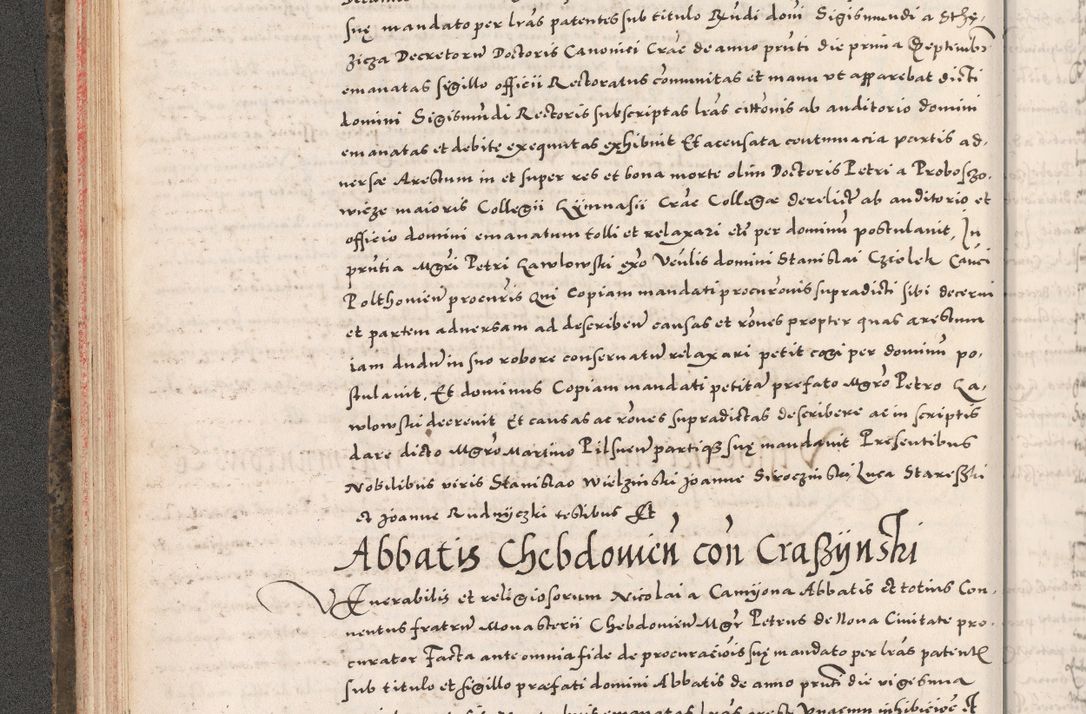 suę mandato per lrãs patentes sub titulo Rñdi domi Sigismundi a Sthę-
zicza Decretorũ Doctoris Canonici Crãc de anno prñti die prima Septimb
emanatas sigillo officii Rectoratus cõmunitas et manu vt apparebat dicti
domini Sigismũdi Rectoris subscriptas lrãs citõnis ab auditorio domini
emanatas et debite exequutas exhibuit Et accusata contumacia partis ad-
versæ Arestum in et super res et bona morte olim Doctoris Petri a Proboszo-
wicze maioris Collegii Gymnasii Crãc Collegæ derelict ab auditorio et
officio domini emanatum tolli et relaxari etc per dominũ postulauit, In
prñtia Mgri Petri Gawlowski exo Veñlis domini Stanislai Cziolek Canci
Polthouieñ procuris Qui Copiam mandati procurõnis supradicti sibi decerni
et partem aduersam ad describeñ causas et rõnes propter quas arestum
iam dudũ in suo robore conseruatũ relaxari petit cogi per dominũ po-
stulauit, Et dominus Copiam mandati petitã prefato Mgro Petro Ga-
wlowski decreuit Et causas ac rõnes supradictas describere ac in scriptis
dare dicto Mgro Martino Pilsneñ partiqz suę mandauit Presentibus
Nobilibus viris Stanislao Wielzinski Joanne Siroczinski, Luca Stareszki
et Joanne Rudnyczki testibus Et
Abbatis Chebdouieñ coñ Craszynski
Venerabilis et religiosorum Nicolai a Camyona Abbatis et totius Con-
uentus fratrũ Monasterii Chebdouieñ Mgr Petrus de Noua Ciuitate pro-
curator Facta ante omnia fide de procuraciõis suę mandato per lrãs patentes
sub titulo et sigillo præfati domini Abbatis de anno prñti die vigesima